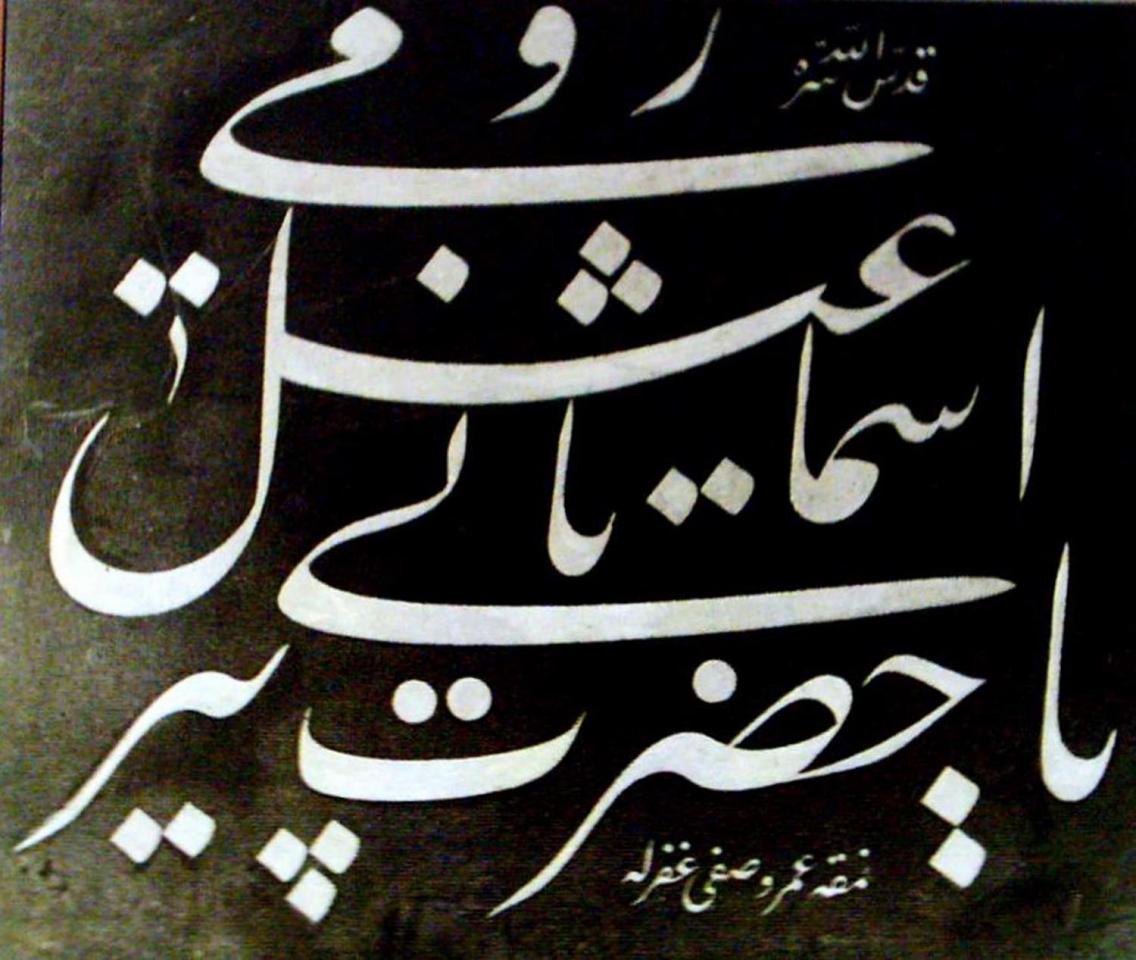 یا حضرت پیر
ثانی
اسماعیل
رومی
قدس الله سره
نمقه عمر وصفی غفرله